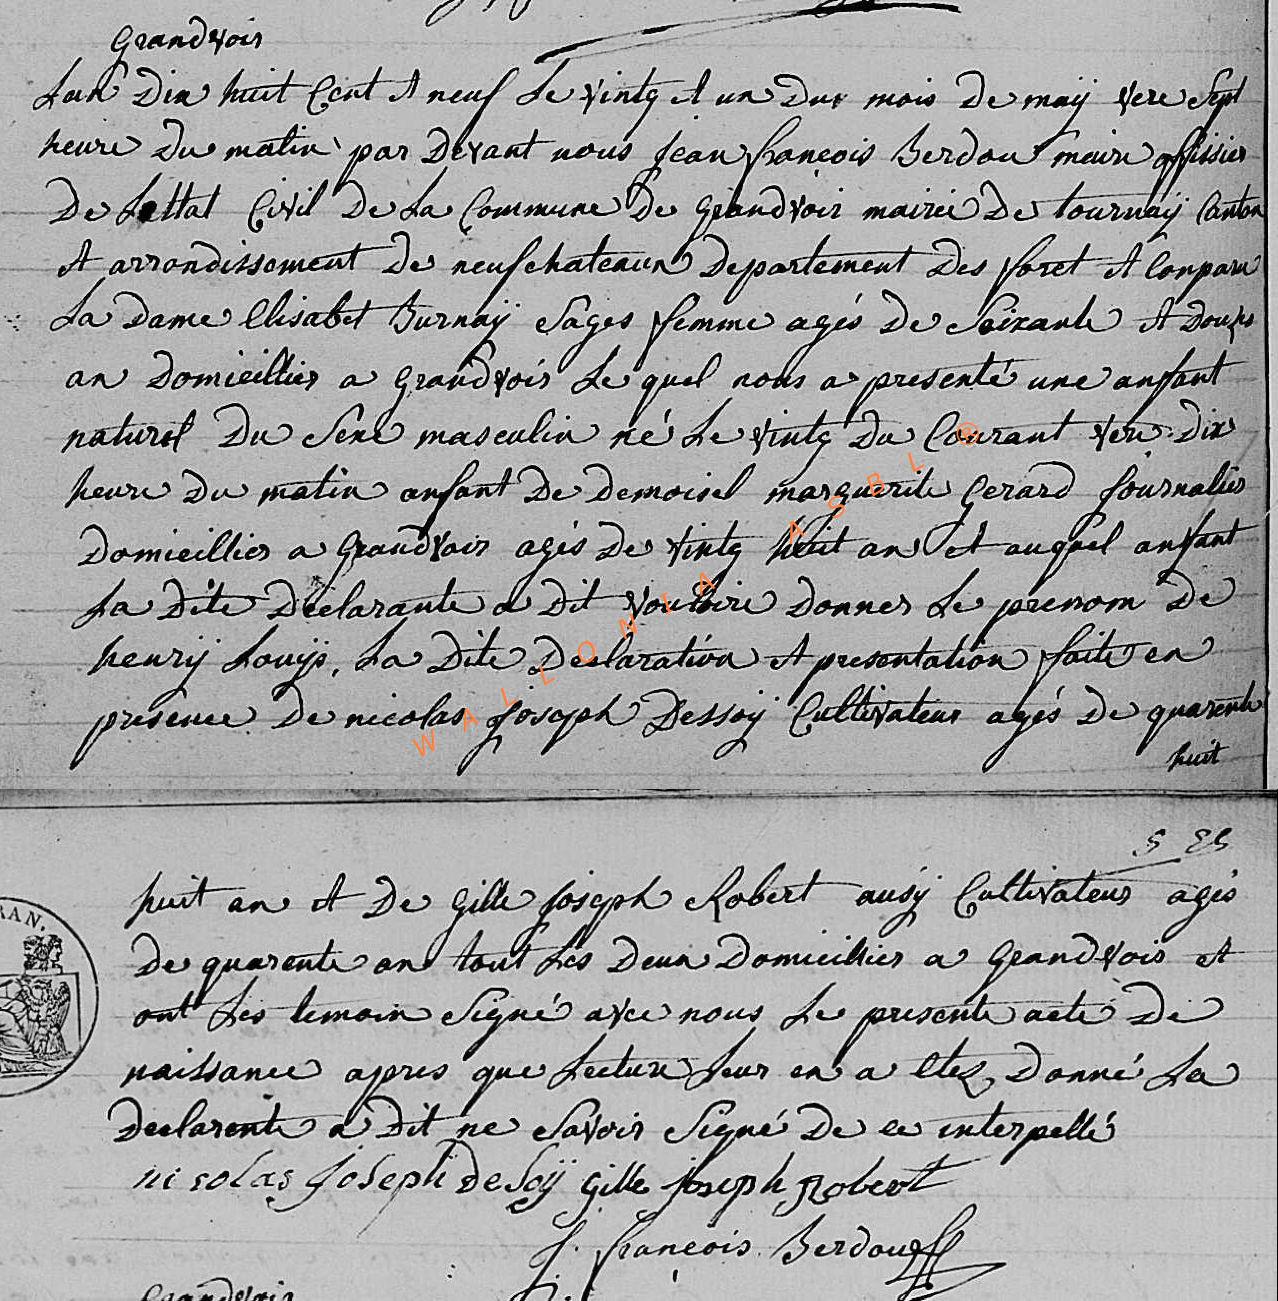 Grandvoir
Lan Dix huit Cent et neuf Le vingt et un Dux mois De maÿ vere Sept
heure Du matin par Devant nous Jean francois Berdou maire offissier
De Lettat Civil De La Commune De Grandvoir mairie De tournaÿ Canton
et arrondissement De neufchateaux Departement Des foret et Conparu
La Dame Elisabet Burnaÿ Sages femme agés De Soixante et Douze
an Domicillier a Grandvoir Le quel nous a presenté une anfant
naturel Du Sexe masculin né Le vingt Du Courant vere Dix
heure Du matin anfant De Demoisel marguerite Gerard Journalier
Domicillier a Grandvoir agés De vingt huit an et auquel anfant
La Dite Declarante a Dit vouloire Donner Le prenom De
henrÿ Louÿs, La Dite Declaration et presentation faite en
presence De nicolas Joseph Dessoÿ Cultivateur agés De quarente
huit
5 
huit an et De Gille Joseph Robert ausÿ Cultivateur agés
De quarente an tout Les Deux Domicillier a Grandvoir et
ont Les temoin Signé avec nous Le presente acte De
naissance apres que Lecture Leur en a Etez Donné La
Declarente a Dit ne Savoir Signé De ce interpellé
nicolas Joseph DeSoÿ Gille Joseph Robert
J. francois Berdou
Grandvoir
RAN.
WALLONIA ASBL ®